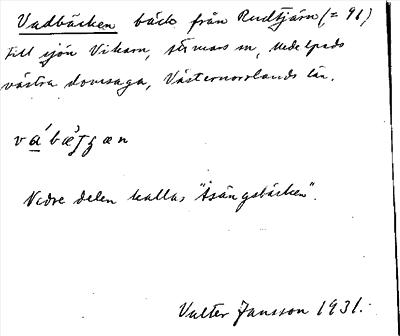 Vadbäcken bäck från Rudtjärn (= 91)
till sjön Vikarn, Stmars sn, Medelpads
västra domsaga, Västernorrlands län.
Nedre delen kallas "Åsängsbäcken".
Valter Jansson 1931.